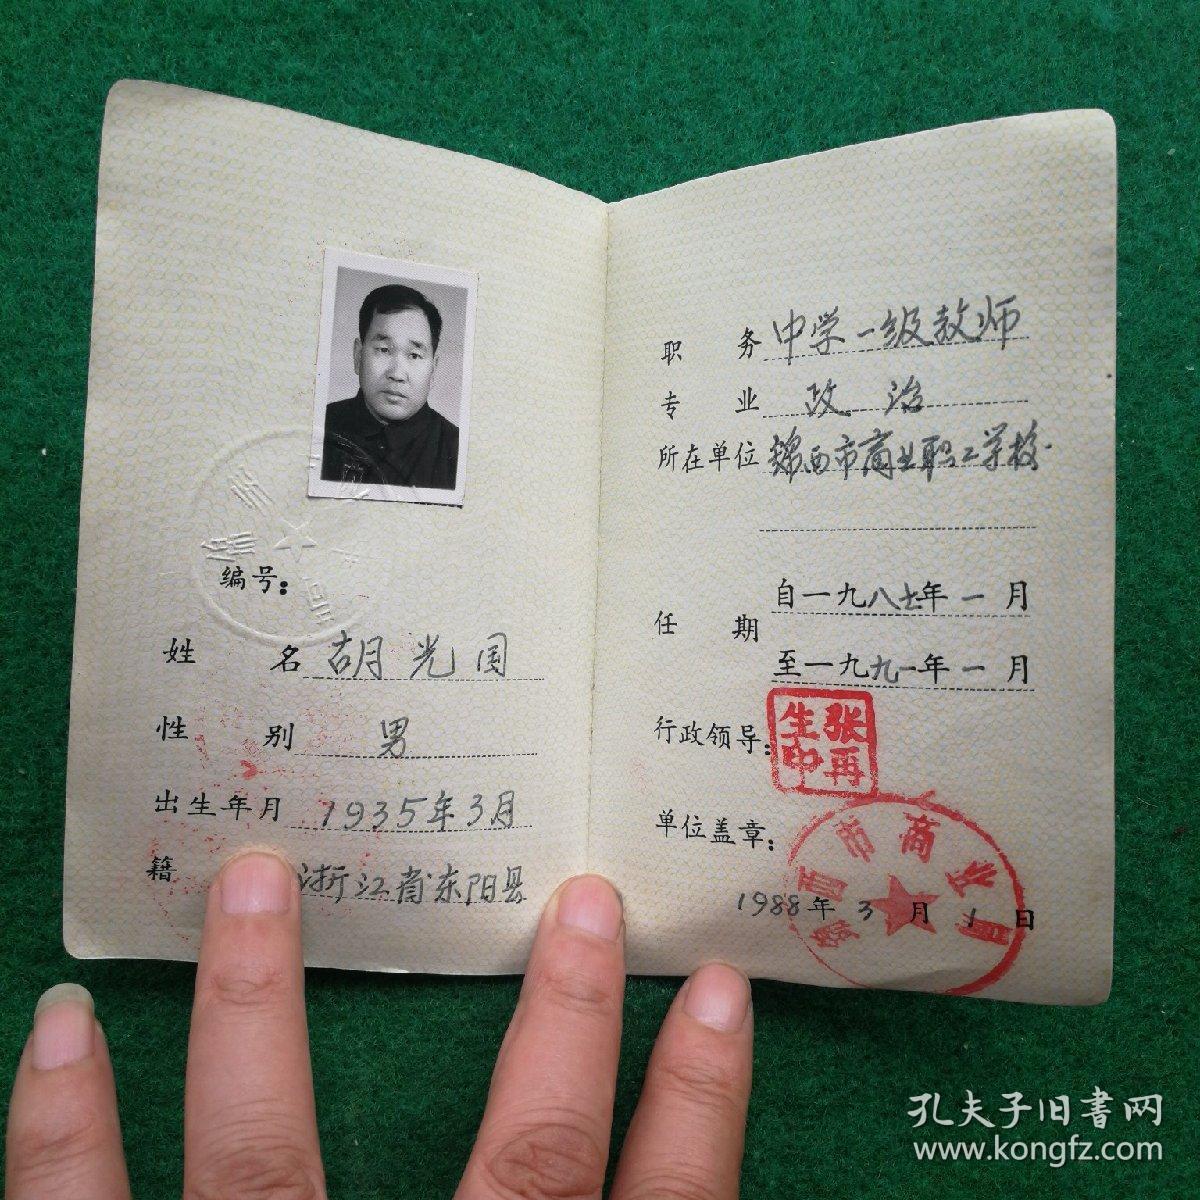 编号：
姓 名 胡光国
性 别 男
出生年月 1935年3月
籍 浙江省东阳县
职 务 中学一级教师
专 业 政治
所在单位 锦西市商业职工学校
任 期
自一九八七年一月
至一九九一年一月
行政领导：
张再生印
单位盖章：
锦西市商业局
1988年3月1日
孔夫子旧書网
www.kongfz.com